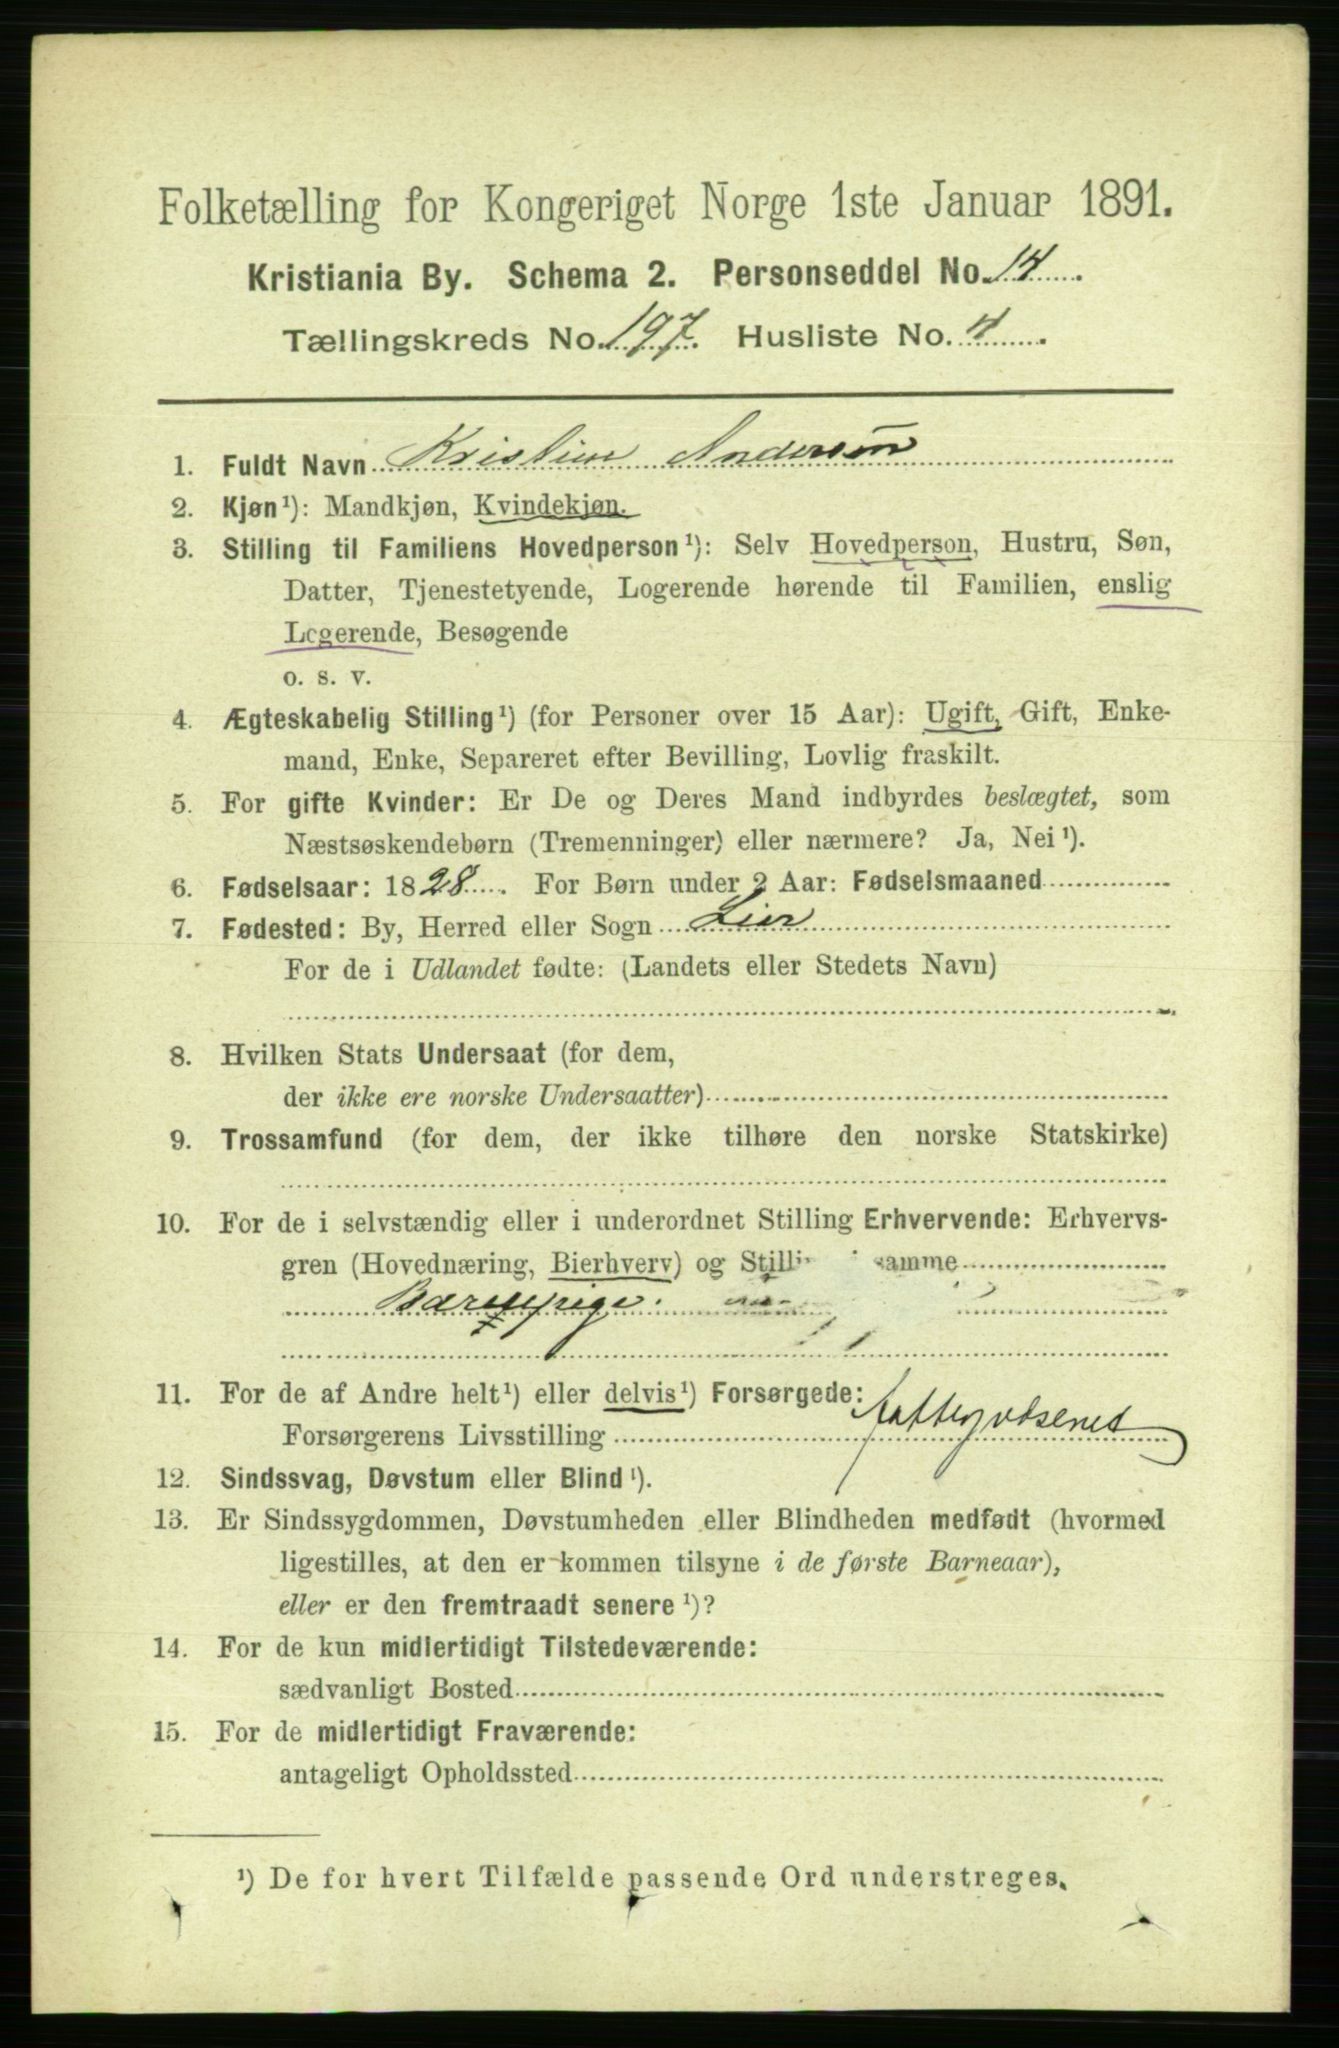 Folketælling for Kongeriget Norge 1ste Januar 1891.
Kristiania By. Schema 2. Personseddel No. 14.
Tællingskreds No. 197. Husliste No. 4.
1. Fuldt Navn Kristine Andersen
2. Kjøn¹): Mandkjøn, Kvindekjøn.
3. Stilling til Familiens Hovedperson¹): Selv Hovedperson, Hustru, Søn,
Datter, Tjenestetyende, Logerende hørende til Familien, enslig
Logerende, Besøgende
o. s. v.
4. Ægteskabelig Stilling¹) (for Personer over 15 Aar): Ugift, Gift, Enke-
mand, Enke, Separeret efter Bevilling, Lovlig fraskilt.
5. For gifte Kvinder: Er De og Deres Mand indbyrdes beslægtet, som
Næstsøskendebørn (Tremenninger) eller nærmere? Ja, Nei¹).
6. Fødselsaar: 1828. For Børn under 2 Aar: Fødselsmaaned
7. Fødested: By, Herred eller Sogn Lier
For de i Udlandet fødte: (Landets eller Stedets Navn)
8. Hvilken Stats Undersaat (for dem,
der ikke ere norske Undersaatter)
9. Trossamfund (for dem, der ikke tilhøre den norske Statskirke)
10. For de i selvstændig eller i underordnet Stilling Erhvervende: Erhvervs-
gren (Hovednæring, Bierhverv) og Stilli samme
Bærepige.
11. For de af Andre helt¹) eller delvis¹) Forsørgede:
Forsørgerens Livsstilling fattigvæsenet
12. Sindssvag, Døvstum eller Blind¹).
13. Er Sindssygdommen, Døvstumheden eller Blindheden medfødt (hvormed
ligestilles, at den er kommen tilsyne i de første Barneaar),
eller er den fremtraadt senere¹)?
14. For de kun midlertidigt Tilstedeværende:
sædvanligt Bosted
15. For de midlertidigt Fraværende:
antageligt Opholdssted
¹) De for hvert Tilfælde passende Ord understreges.